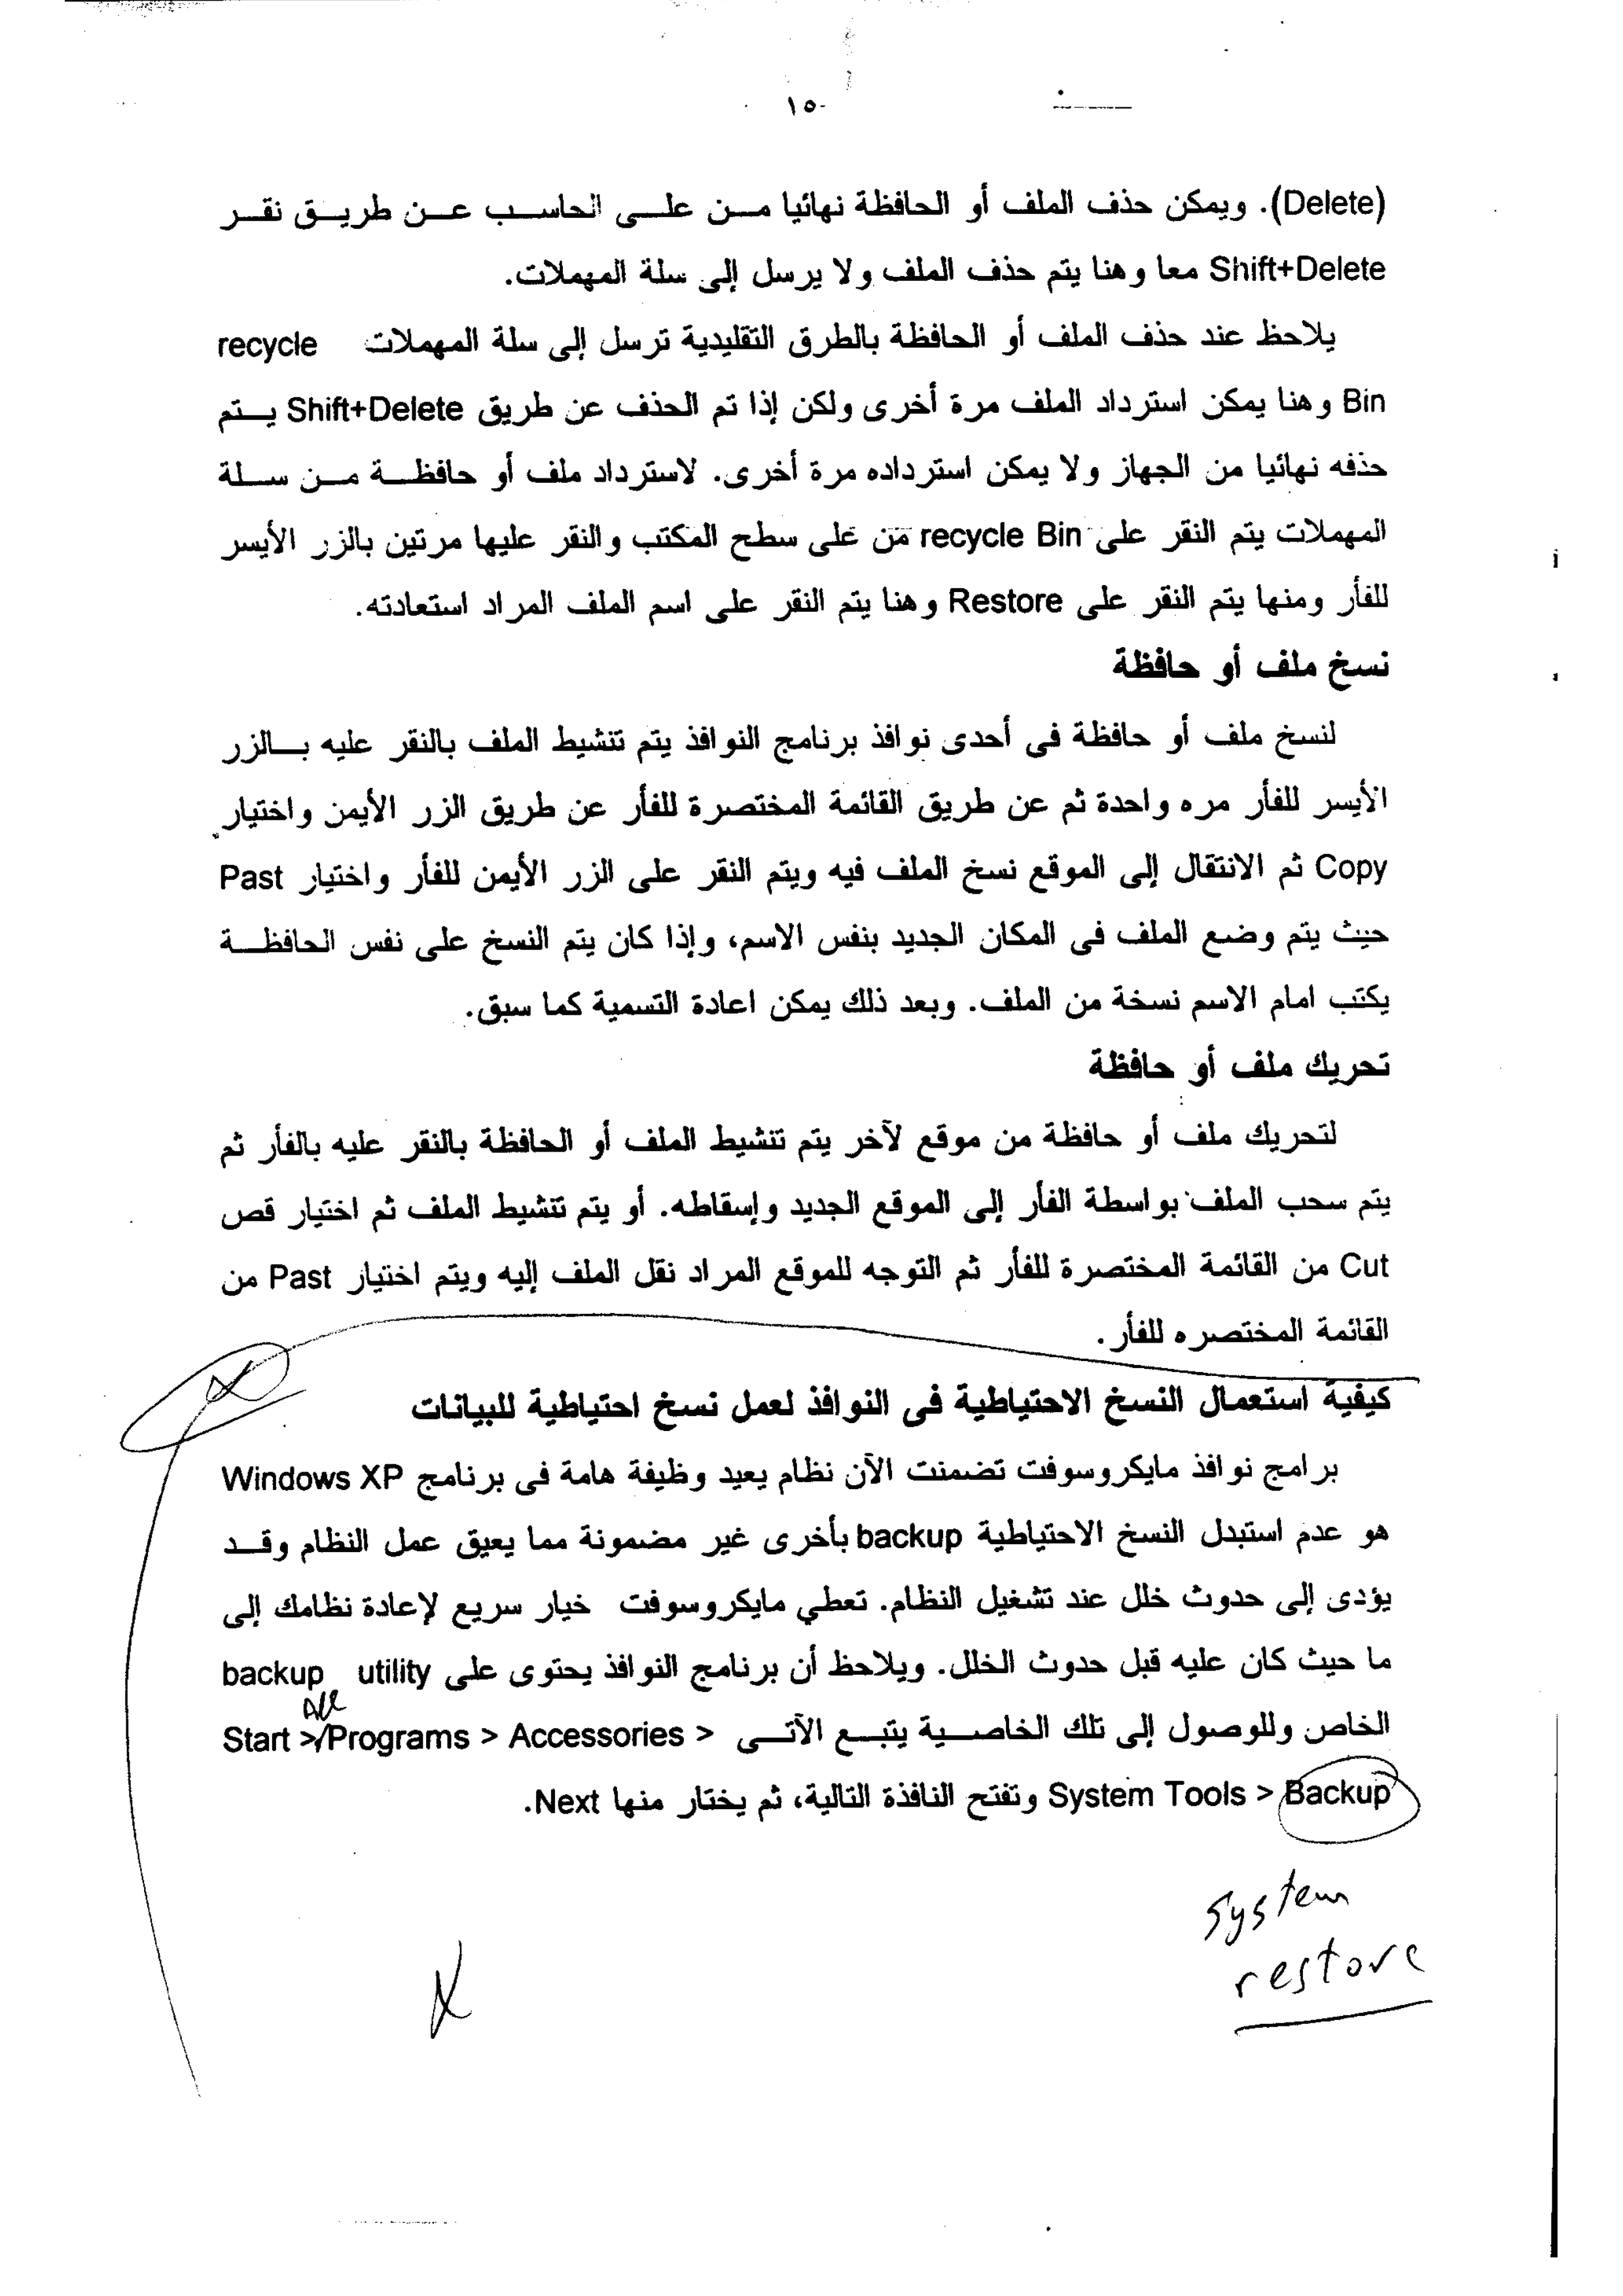 ١٥٠
(Delete). ويمكن حذف الملف أو الحافظة نهائيا من على الحاسب عن طريق نقر
Shift+Delete معا وهنا يتم حذف الملف ولا يرسل إلى سلة المهملات.
يلاحظ عند حذف الملف أو الحافظة بالطرق التقليدية ترسل إلى سلة المهملات recycle
Bin وهنا يمكن استرداد الملف مرة أخرى ولكن إذا تم الحذف عن طريق Shift+Delete يتم
حذفه نهائيا من الجهاز ولا يمكن استرداده مرة أخرى. لاسترداد ملف أو حافظة من سلة
المهملات يتم النقر على recycle Bin من على سطح المكتب والنقر عليها مرتين بالزر الأيسر
للفأر ومنها يتم النقر على Restore وهنا يتم النقر على اسم الملف المراد استعادته.
نسخ ملف أو حافظة
لنسخ ملف أو حافظة فى أحدى نوافذ برنامج النوافذ يتم تنشيط الملف بالنقر عليه بالزر
الأيسر للفأر مره واحدة ثم عن طريق القائمة المختصرة للفأر عن طريق الزر الأيمن واختيار
Copy ثم الانتقال إلى الموقع نسخ الملف فيه ويتم النقر على الزر الأيمن للفأر واختيار Past
حيث يتم وضع الملف فى المكان الجديد بنفس الاسم، وإذا كان يتم النسخ على نفس الحافظة
يكتب امام الاسم نسخة من الملف. وبعد ذلك يمكن اعادة التسمية كما سبق.
تحريك ملف أو حافظة
لتحريك ملف أو حافظة من موقع لآخر يتم تنشيط الملف أو الحافظة بالنقر عليه بالفأر ثم
يتم سحب الملف بواسطة الفأر إلى الموقع الجديد وإسقاطه. أو يتم تنشيط الملف ثم اختيار قص
Cut من القائمة المختصرة للفأر ثم التوجه للموقع المراد نقل الملف إليه ويتم اختيار Past من
القائمة المختصره للفأر.
كيفية استعمال النسخ الاحتياطية فى النوافذ لعمل نسخ احتياطية للبيانات
برامج نوافذ مايكروسوفت تضمنت الآن نظام يعيد وظيفة هامة فى برنامج Windows XP
هو عدم استبدل النسخ الاحتياطية backup بأخرى غير مضمونة مما يعيق عمل النظام وقد
يؤدى إلى حدوث خلل عند تشغيل النظام. تعطي مايكروسوفت خيار سريع لإعادة نظامك إلى
ما حيث كان عليه قبل حدوث الخلل. ويلاحظ أن برنامج النوافذ يحتوى على backup utility
All
الخاص وللوصول إلى تلك الخاصية يتبع الآتى Start > Programs > Accessories >
System Tools > Backup وتفتح النافذة التالية، ثم يختار منها Next.
system
restore